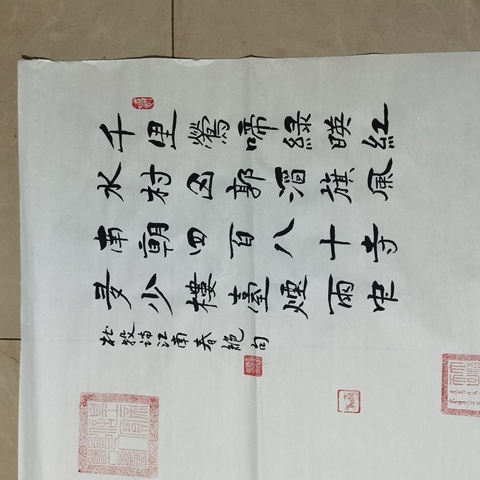 千里鶯啼綠暎紅
水村山郭酒旗風
南朝四百八十寺
多少樓臺煙雨中
杜牧詩江南春絕句